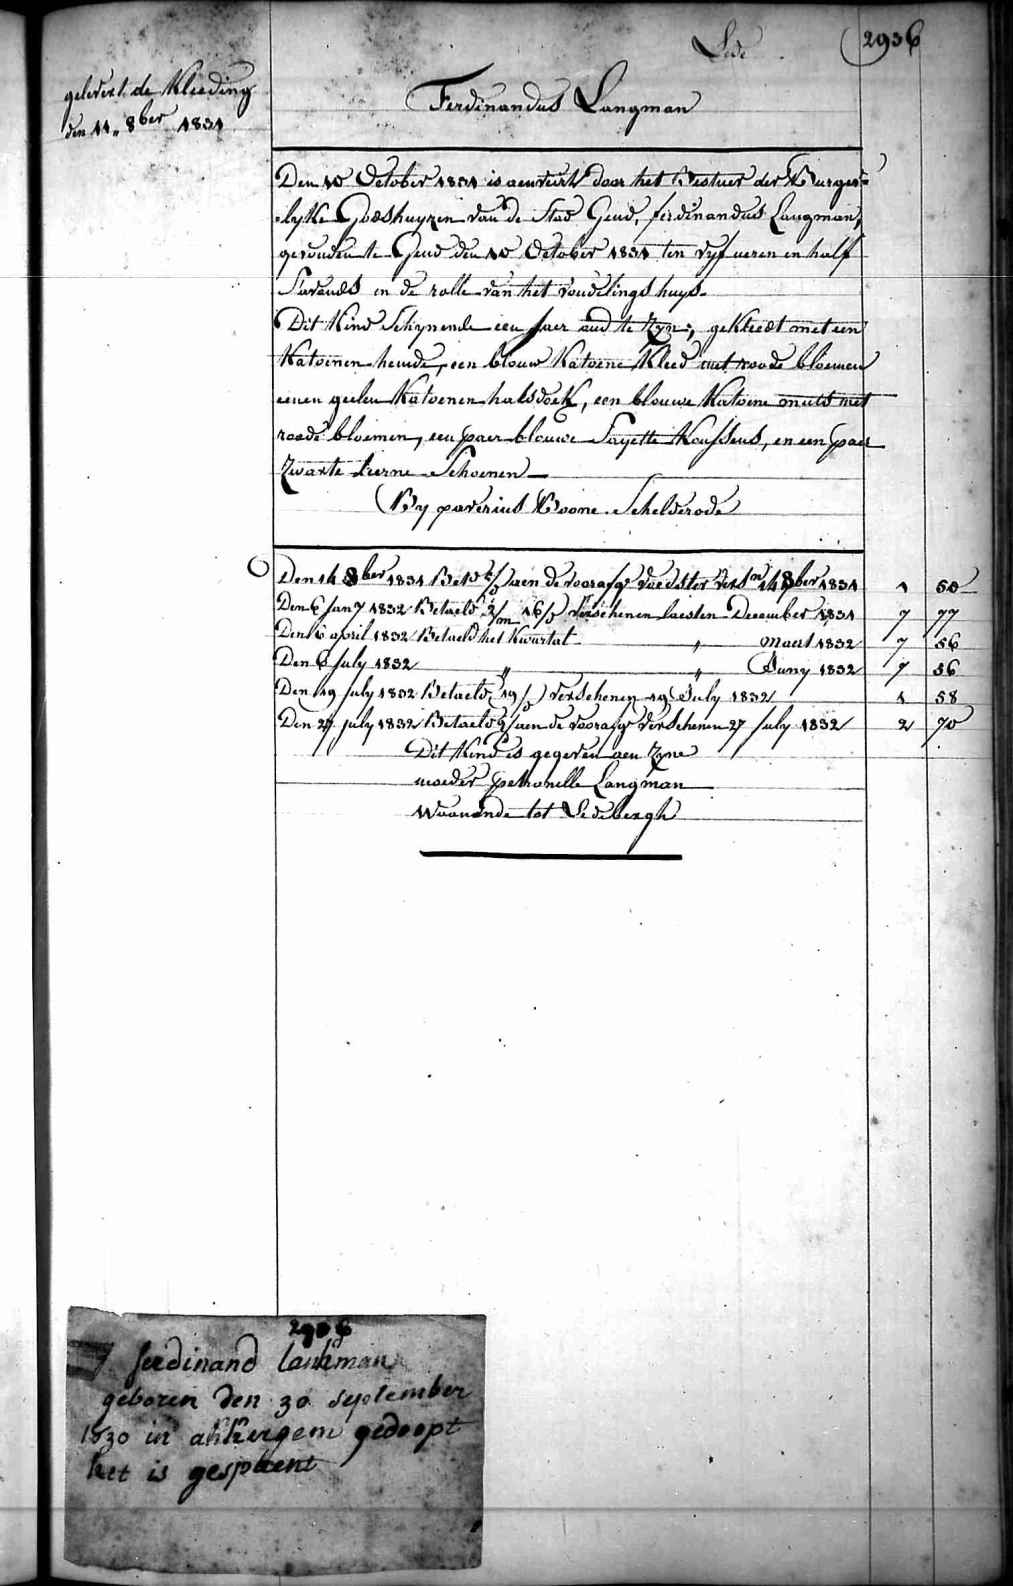 Lede
2936
gelevert de Kleeding
den 11. 8ber 1831
Ferdinandus Langman
Den 10 October 1831 is aenveirt door het Bestuer der Burger=
=lyke Godshuyzen van de Stad Gend, ferdinandus Langman,
gevonden te Gend den 10 October 1831 ten vyf ueren en half
S'avonds in de rolle van het vondelings huys.
Dit Kind Schynende een Jaer oud te Zyn, gekleedt met een
Katoenen hemde, een blouw Katoene Kleed met roode bloemen
eenen geelen Katoenen halsdoek, een blouwe Katoene muts met
roode bloemen, een paer blouwe Sayette Koussens, en een paer
Zwarte leerne Schoenen
By paverius Boone. Schelderode
Den 14 8ber 1831 Bet aen de voorasge voedster Versn 14 8ber 1831 1 50
Den 6 Jany 1832 Betaeld 2/m 16/d Verschenen laesten December 1831 7 77
Den april 1832 Betaeld het Kwartal " Maert 1832 7 56
Den 6 July 1832 " " Juny 1832 7 56
Den 19 July 1832 Betaeld 19/d verschenen 19 July 1832 1 58
Den 27 July 1832 Betaeld aen de voorasge Verschenen 27 July 1832 2 70
Dit Kind is gegeven aen Zyne
moeder petronelle Langman
Woonende tot Ledebergh
2936
ferdinand lankman
geboren den 30 september
1830 in akkergem gedoopt
het is gespleent